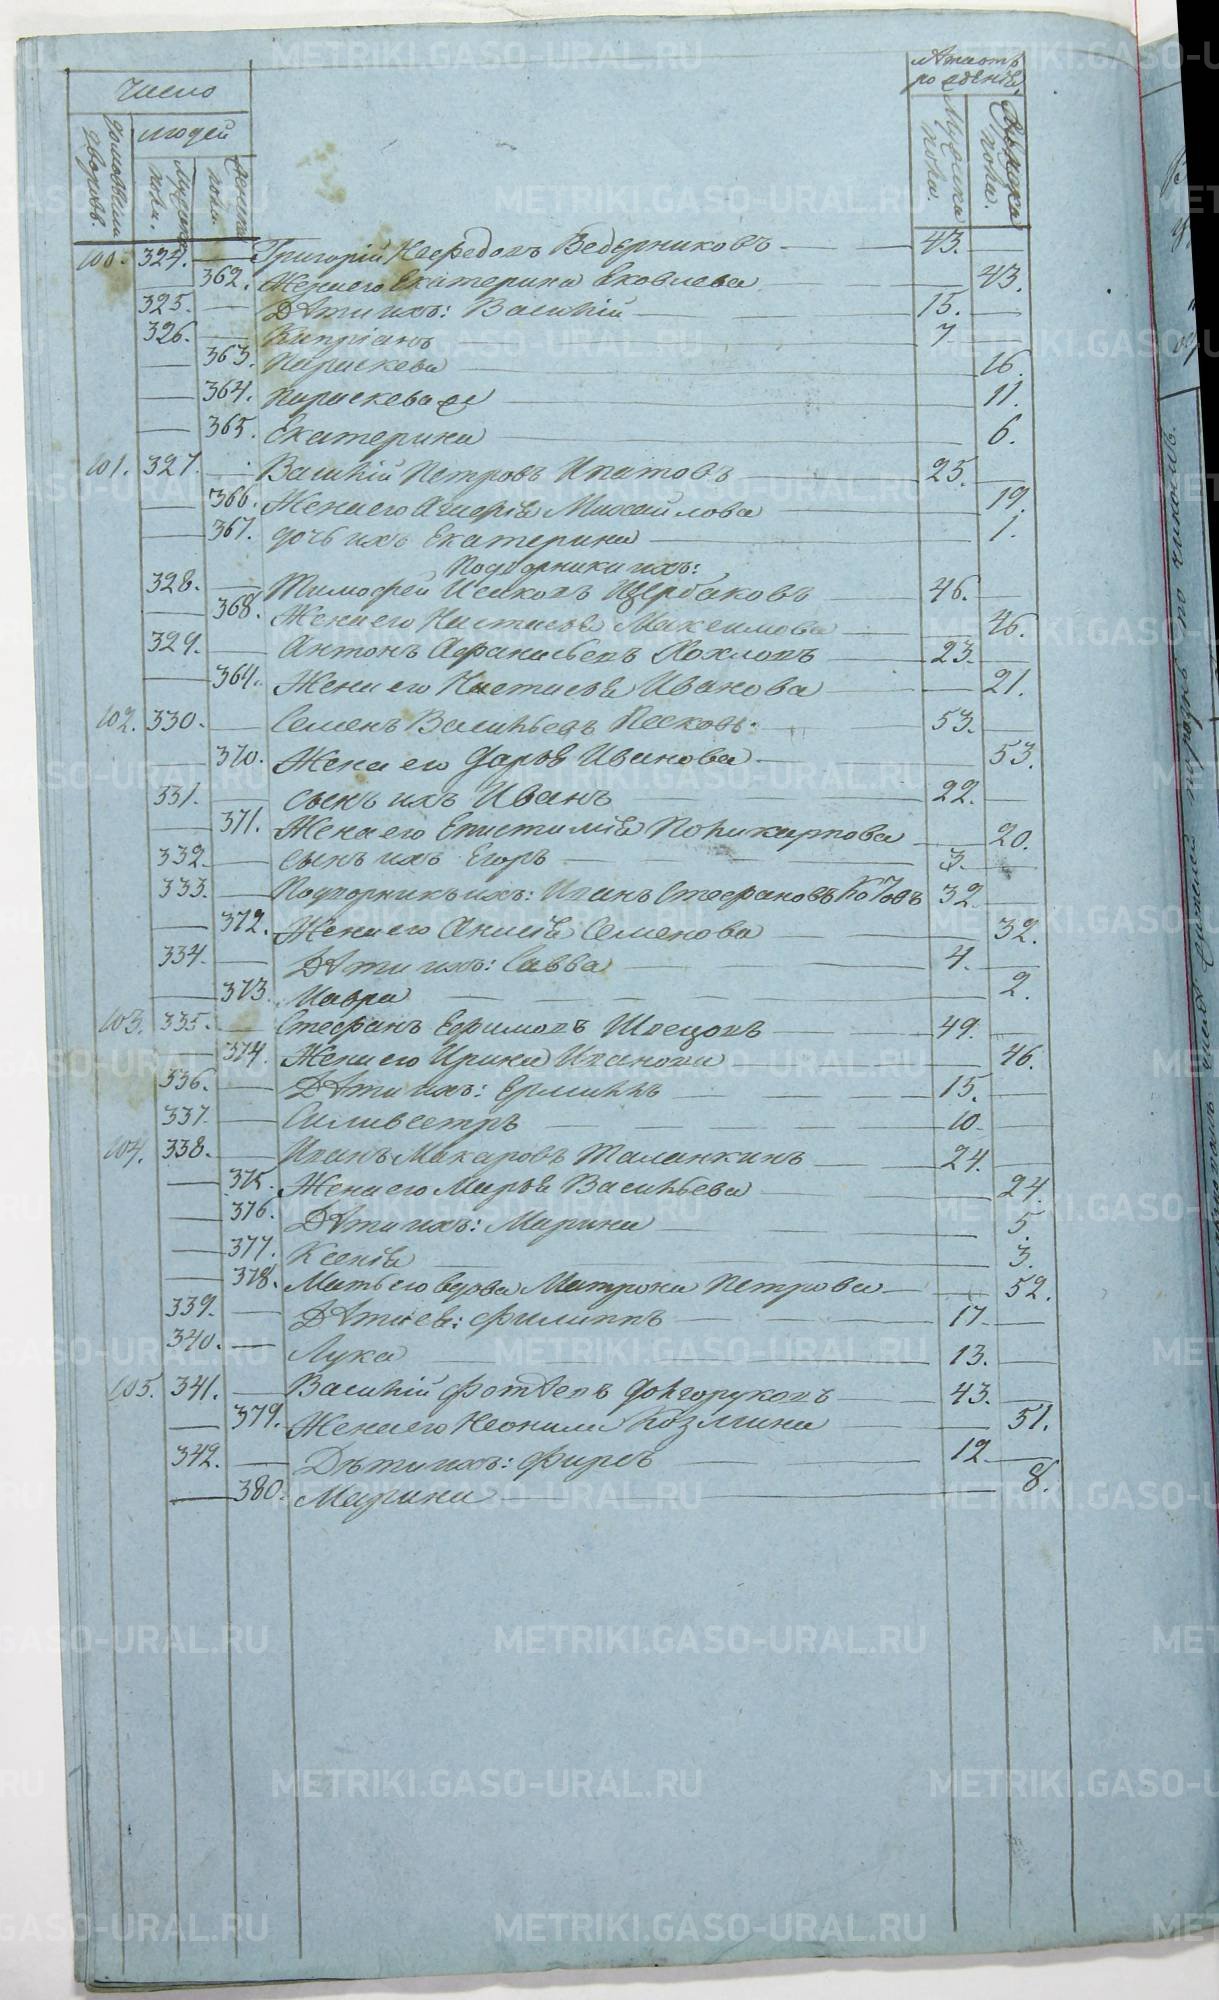 Число
Лѣта отъ рожденія.
домовъ или дворовъ.
людей
мужска пола.
женска пола.
Мужска пола.
Женска пола.
100. 324. — Григорій Нефедовъ Ведерниковъ — 43. —
— 362. Жена его Екатерина Яковлева — 43.
325. — Дѣти ихъ: Василій — 15. —
326. — Кипріанъ 7
— 363. Параскева — 16.
— 364. Параскева — 11.
— 365. Екатерина — 6.
101. 327. — Василій Петровъ Ипатовъ — 25. —
— 366. Жена его Агафія Михайлова — 19.
— 367. дочь ихъ Екатерина — 1.
Подворники ихъ:
328. — Тимофей Исаковъ Щербаковъ — 46. —
— 368. Жена его Настасья Максимова — 46.
329. — Антонъ Афанасьевъ Хохловъ — 23. —
— 364. Жена его Настасья Иванова — 21.
102. 330. — Семенъ Васильевъ Песковъ. 53. —
— 370. Жена его Дарья Иванова — 53.
331. — сынъ ихъ Иванъ — 22. —
— 371. Жена его Епистимія Поликарпова — 20.
332. — сынъ ихъ Егоръ — 3. —
333. — Подворникъ ихъ: Иванъ Стефановъ Котовъ 32. —
— 372. Жена его Анисія Семенова — 32.
334. — Дѣти ихъ: Савва — 4. —
— 373. Мавра — 2.
103. 335. — Стефанъ Ефимовъ Швецовъ — 49. —
— 374. Жена его Ирина Иванова — 46.
336. — Дѣти ихъ: Ермилъ — 15. —
337. — Силивестръ — 10. —
104. 338. — Иванъ Макаровъ Таланкинъ — 24. —
— 375. Жена его Марья Васильева — 24.
— 376. Дѣти ихъ: Марина — 5.
— 377. Ксенія — 3.
— 378. Мать его вдова Матрона Петрова — 52.
339. — Дѣти ея: Филиппъ — 17. —
340. — Лука — 13. —
105. 341. — Василій Фотѣевъ Долгоруковъ — 43. —
— 379. Жена его Неонила Козмина — 51.
342. — Дѣти ихъ: Фирсъ — 12. —
— 380. Марина — 8.
METRIKI.GASO-URAL.RU